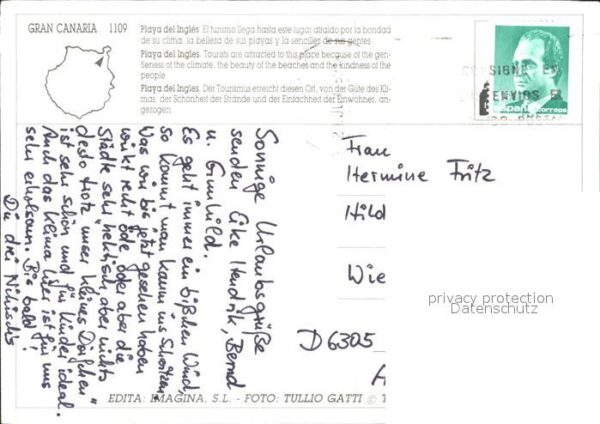 GRAN CANARIA 1109
Playa del Inglés. El turismo llega hasta este lugar atraído por la bondad
de su clima, la bellesa de sus playas y la sencillez de sus gentes.
Playa del Ingles. Tourists are attracted to this place because of the gen-
tleness of the climate, the beauty of the beaches and the kindness of the
people.
Playa del Ingles. Der Tourismus erreicht diesen Ort, von der Güte des Kli-
mas, der Schönheit der Strände und der Einfachheit der Einwohner, an-
gezogen.
CONSIGNE
ENVIOS
España correos
Sonnige Urlaubsgrüße
senden Eike Hendrik, Bernd
u. Gunhild.
Es geht immer ein bißchen Wind,
so kommt man kaum ins Schwitzen.
Was wir bis jetzt gesehen haben
wirkt recht öde oder aber die
Städte sehr hektisch, aber nichts
desto trotz "unser kleines Dörfchen"
ist sehr schön und für Kinder ideal.
Auch das Klima hier ist für uns
sehr erholsam. Bis bald!
Die drei
Frau
Hermine Fritz
Hild
Wie
D 6305
privacy protection
Datenschutz
EDITA: IMAGINA, S.L. - FOTO: TULLIO GATTI ©